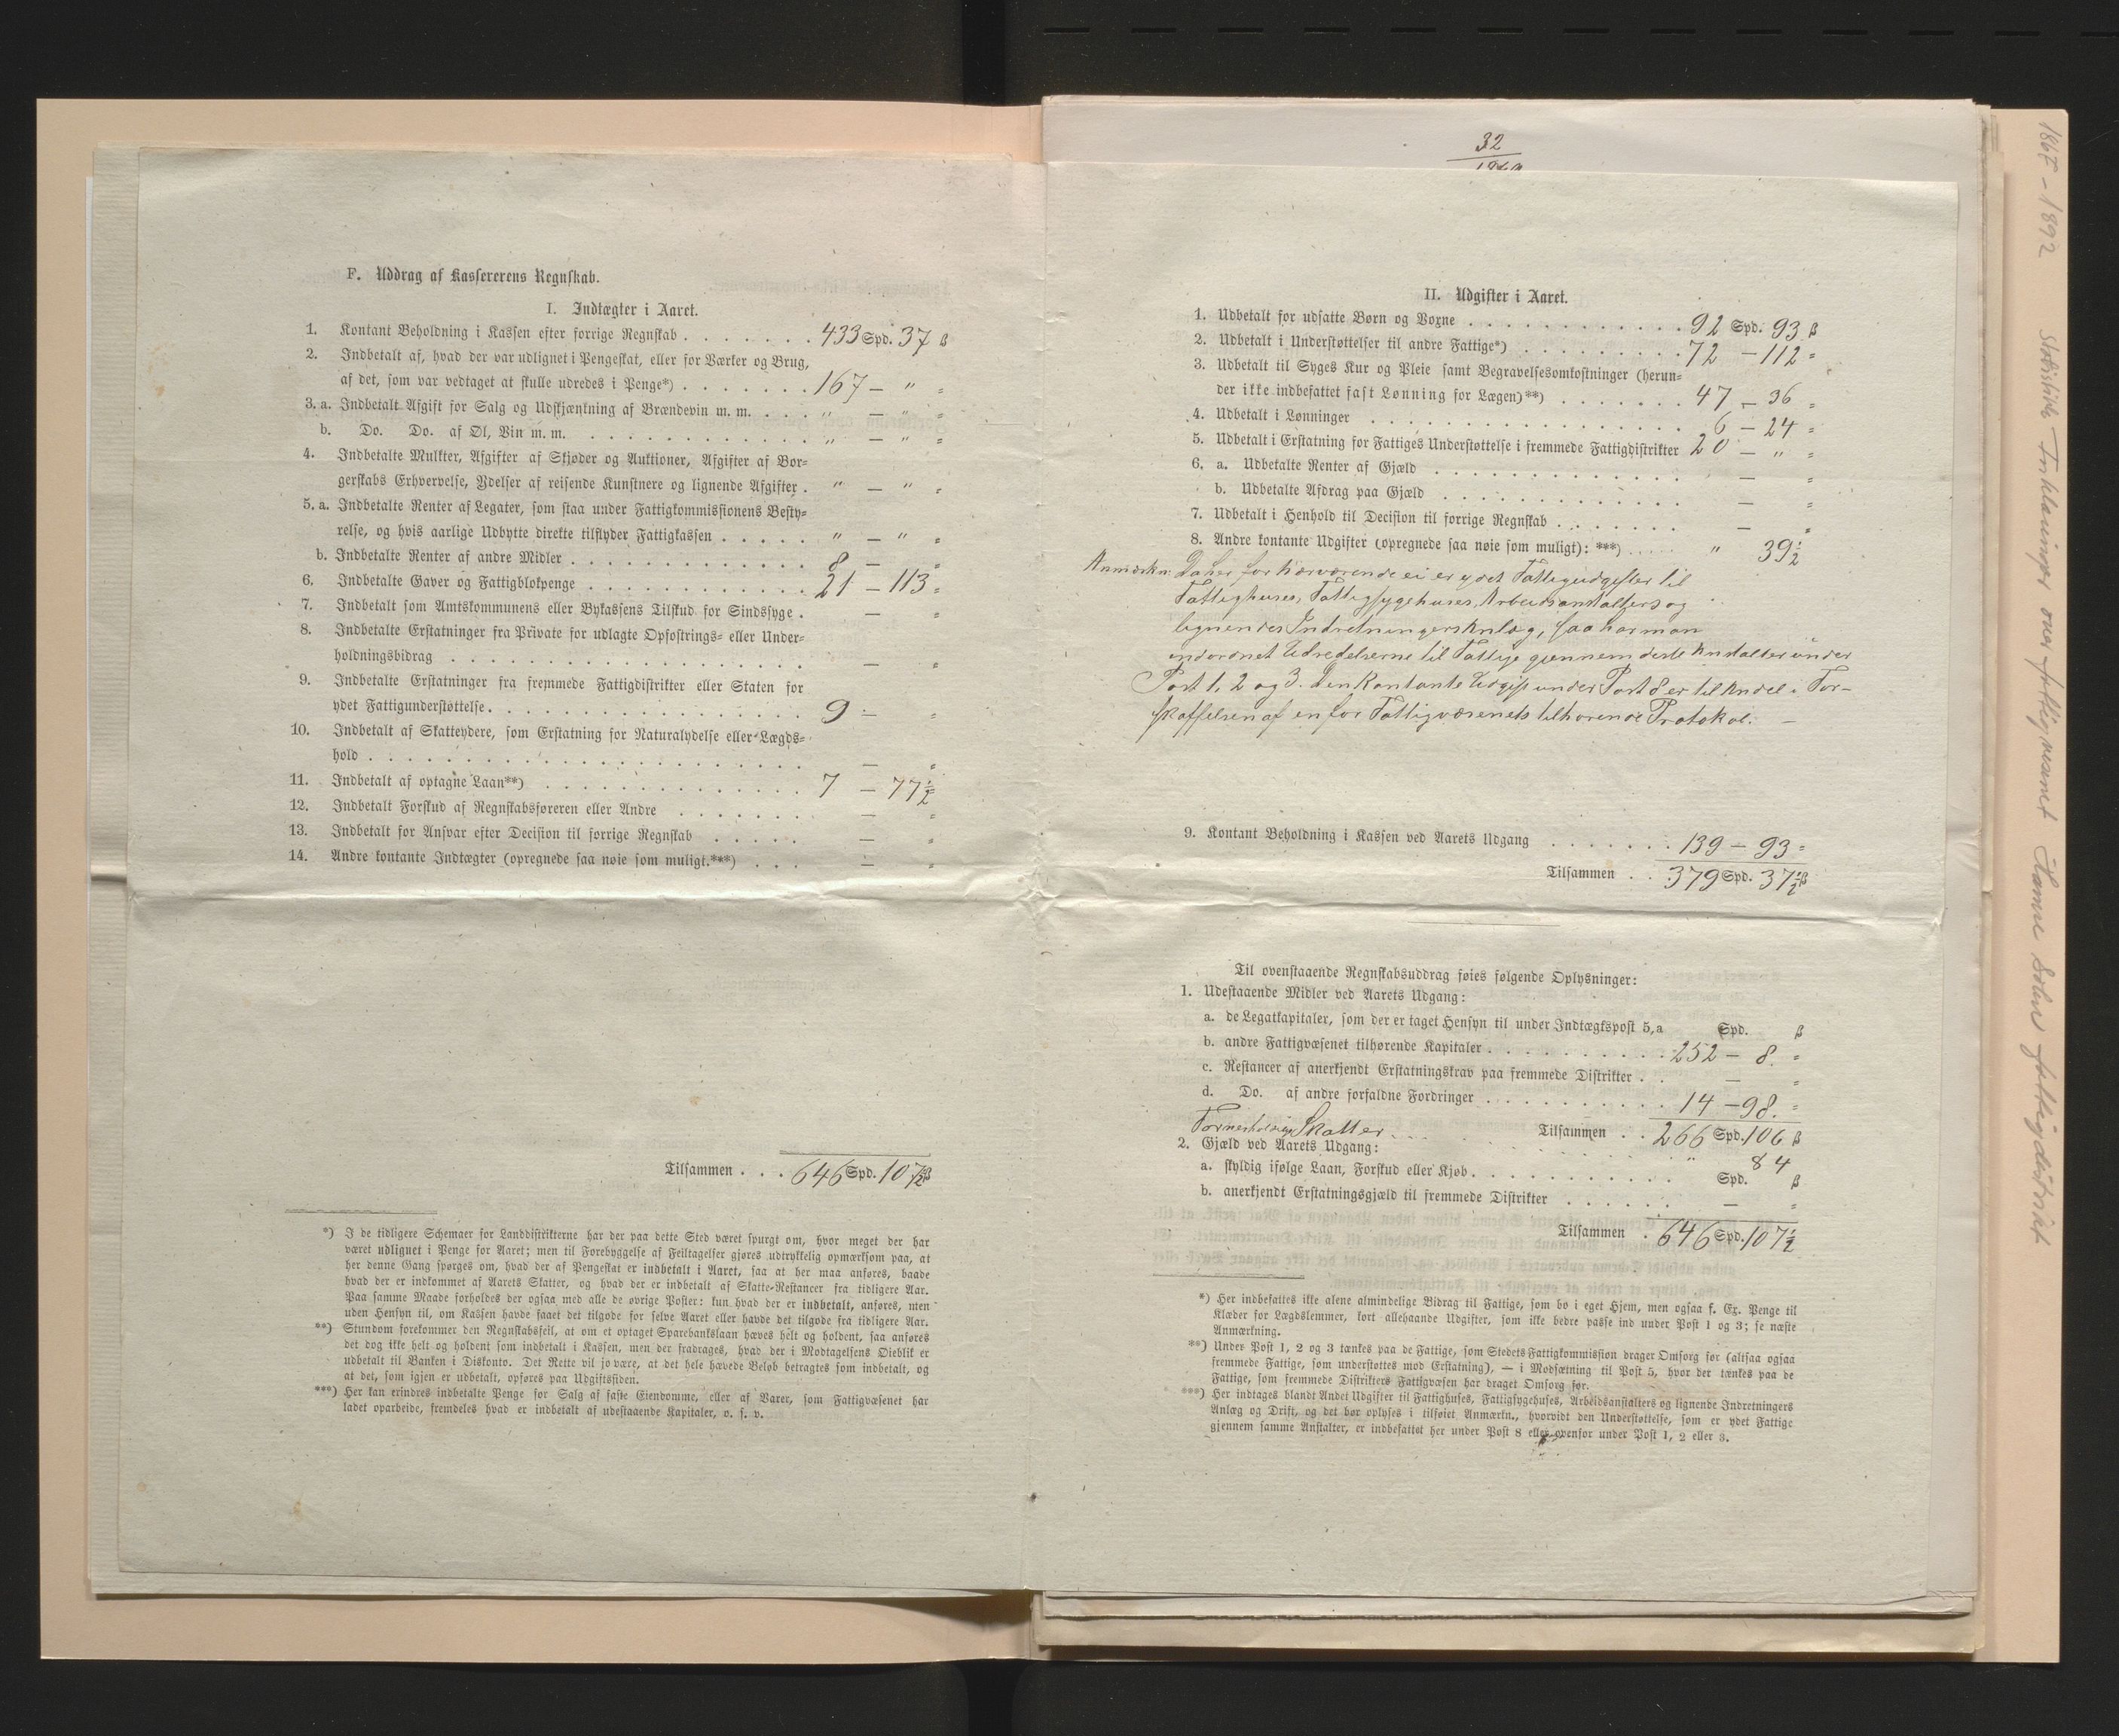 F. Uddrag af Kassererens Regnskab.
I. Indtægter i Aaret.
1. Kontant Beholdning i Kassen efter forrige Regnskab . . . . . . . 433 Spd. 37 ß
2. Indbetalt af, hvad der var udlignet i Pengeskat, eller for Værker og Brug,
af det, som var vedtaget at skulle udredes i Penge*) . . . . . . . 167 — " "
3. a. Indbetalt Afgift for Salg og Udskjænkning af Brændevin m. m. . . . " — " "
b. Do. Do. af Øl, Vin m. m. . . . . . . . . . . . . " — " "
4. Indbetalte Mulkter, Afgifter af Skjøder og Auktioner, Afgifter af Bor=
gerskabs Erhvervelse, Ydelser af reisende Kunstnere og lignende Afgifter . " — " "
5. a. Indbetalte Renter af Legater, som staa under Fattigkommissionens Besty=
relse, og hvis aarlige Udbytte direkte tilflyder Fattigkassen . . . . . " — " "
b. Indbetalte Renter af andre Midler . . . . . . . . . . . . . 8 — "
6. Indbetalte Gaver og Fattigblokpenge . . . . . . . . . . . . 21 — 113 "
7. Indbetalt som Amtskommunens eller Bykassens Tilskud for Sindssyge . — "
8. Indbetalte Erstatninger fra Private for udlagte Opfostrings= eller Under=
holdningsbidrag . . . . . . . . . . . . . . . . . . — "
9. Indbetalte Erstatninger fra fremmede Fattigdistrikter eller Staten for
ydet Fattigunderstøttelse . . . . . . . . . . . . . . . . 9 — "
10. Indbetalt af Skatteydere, som Erstatning for Naturalydelse eller Lægds=
hold . . . . . . . . . . . . . . . . . . . . . . — "
11. Indbetalt af optagne Laan**) . . . . . . . . . . . . . . 7 — 77½
12. Indbetalt Forskud af Regnskabsføreren eller Andre . . . . . . . . — "
13. Indbetalt for Ansvar efter Decision til forrige Regnskab . . . . . — "
14. Andre kontante Indtægter (opregnede saa nøie som muligt.***) . . . — "
Tilsammen . . . 646 Spd. 107½ ß
*) I de tidligere Schemaer for Landdistrikterne har der paa dette Sted været spurgt om, hvor meget der har
været udlignet i Penge for Aaret; men til Forebyggelse af Feiltagelser gjøres udtrykkelig opmærksom paa, at
her denne Gang spørges om, hvad der af Pengeskat er indbetalt i Aaret, saa at her maa anføres, baade
hvad der er indkommet af Aarets Skatter, og hvad der er indbetalt af Skatte=Restancer fra tidligere Aar.
Paa samme Maade forholdes der ogsaa med alle de øvrige Poster: kun hvad der er indbetalt, anføres, men
uden Hensyn til, om Kassen havde faaet det tilgode for selve Aaret eller havde det tilgode fra tidligere Aar.
**) Stundom forekommer den Regnskabsfeil, at om et optaget Sparebankslaan hæves helt og holdent, saa anføres
det dog ikke helt og holdent som indbetalt i Kassen, men der fradrages, hvad der i Modtagelsens Øieblik er
udbetalt til Banken i Diskonto. Det Rette vil jo være, at det hele hævede Beløb betragtes som indbetalt, og
at det, som igjen er udbetalt, opføres paa Udgiftssiden.
***) Her kan erindres indbetalte Penge for Salg af faste Eiendomme, eller af Varer, som Fattigvæsenet har
ladet oparbeide, fremdeles hvad er indbetalt af udestaaende Kapitaler, o. s. v.
32
II. Udgifter i Aaret.
1. Udbetalt for udsatte Børn og Voxne . . . . . . . . . . . . 92 Spd. 93 ß
2. Udbetalt i Understøttelser til andre Fattige*) . . . . . . . . . 72 — 112 "
3. Udbetalt til Syges Kur og Pleie samt Begravelsesomkostninger (herun=
der ikke indbefattet fast Lønning for Lægen)**) . . . . . . . 47 — 36 "
4. Udbetalt i Lønninger . . . . . . . . . . . . . . . . 6 — 24 "
5. Udbetalt i Erstatning for Fattiges Understøttelse i fremmede Fattigdistrikter 20 — " "
6. a. Udbetalte Renter af Gjæld . . . . . . . . . . . . . — "
b. Udbetalte Afdrag paa Gjæld . . . . . . . . . . . . — "
7. Udbetalt i Henhold til Decision til forrige Regnskab . . . . . . . — "
8. Andre kontante Udgifter (opregnede saa nøie som muligt): ***) . . . . . " 39½
Anmærkn. Da her for Nærværende ei er ydet Fattigudgifter til
Fattighuses, Fattigsygehuses, Arbeidsanstalters og
lignendes Indretningers Anlæg, saa har man
indordnet Udredelserne til Fattige gjennem disse Anstalter under
Post 1, 2 og 3. Den kontante Udgift under Post 8 er til Andel i For-
skaffelsen af en for Fattigvæsenets tilhørende Protokol. —
9. Kontant Beholdning i Kassen ved Aarets Udgang . . . . . . . 139 — 93 "
Tilsammen . . 379 Spd. 37½ ß
Til ovenstaaende Regnskabsuddrag føies følgende Oplysninger:
1. Udestaaende Midler ved Aarets Udgang:
a. de Legatkapitaler, som der er taget Hensyn til under Indtægtspost 5, a Spd. ß
b. andre Fattigvæsenet tilhørende Kapitaler . . . . . . . . . . 252 — 8. "
c. Restancer af anerkjendt Erstatningskrav paa fremmede Distrikter . . — "
d. Do. af andre forfaldne Fordringer . . . . . . . . . . 14 — 98. "
Skatter . . . Tilsammen . . 266 Spd. 106 ß
2. Gjæld ved Aarets Udgang:
a. skyldig ifølge Laan, Forskud eller Kjøb . . . . . . . . . . . " Spd. 84 ß
b. anerkjendt Erstatningsgjæld til fremmede Distrikter . . . . . . — "
Tilsammen . 646 Spd. 107½
*) Her indbefattes ikke alene almindelige Bidrag til Fattige, som bo i eget Hjem, men ogsaa f. Ex. Penge til
Klæder for Lægdslemmer, kort allehaande Udgifter, som ikke bedre passe ind under Post 1 og 3; se næste
Anmærkning.
**) Under Post 1, 2 og 3 tænkes paa de Fattige, som Stedets Fattigkommission drager Omsorg for (altsaa ogsaa
fremmede Fattige, som understøttes mod Erstatning), — i Modsætning til Post 5, hvor der tænkes paa de
Fattige, som fremmede Distrikters Fattigvæsen har draget Omsorg for.
***) Her indtages blandt Andet Udgifter til Fattighuses, Fattigsygehuses, Arbeidsanstalters og lignende Indretningers
Anlæg og Drift, og det bør oplyses i tilføiet Anmærkn., hvorvidt den Understøttelse, som er ydet Fattige
gjennem samme Anstalter, er indbefattet her under Post 8 eller ovenfor under Post 1, 2 eller 3.
1867 - 1892 Statistiske Innklaninger over fattigvesenet Hamre Sokn fattigdistrikt